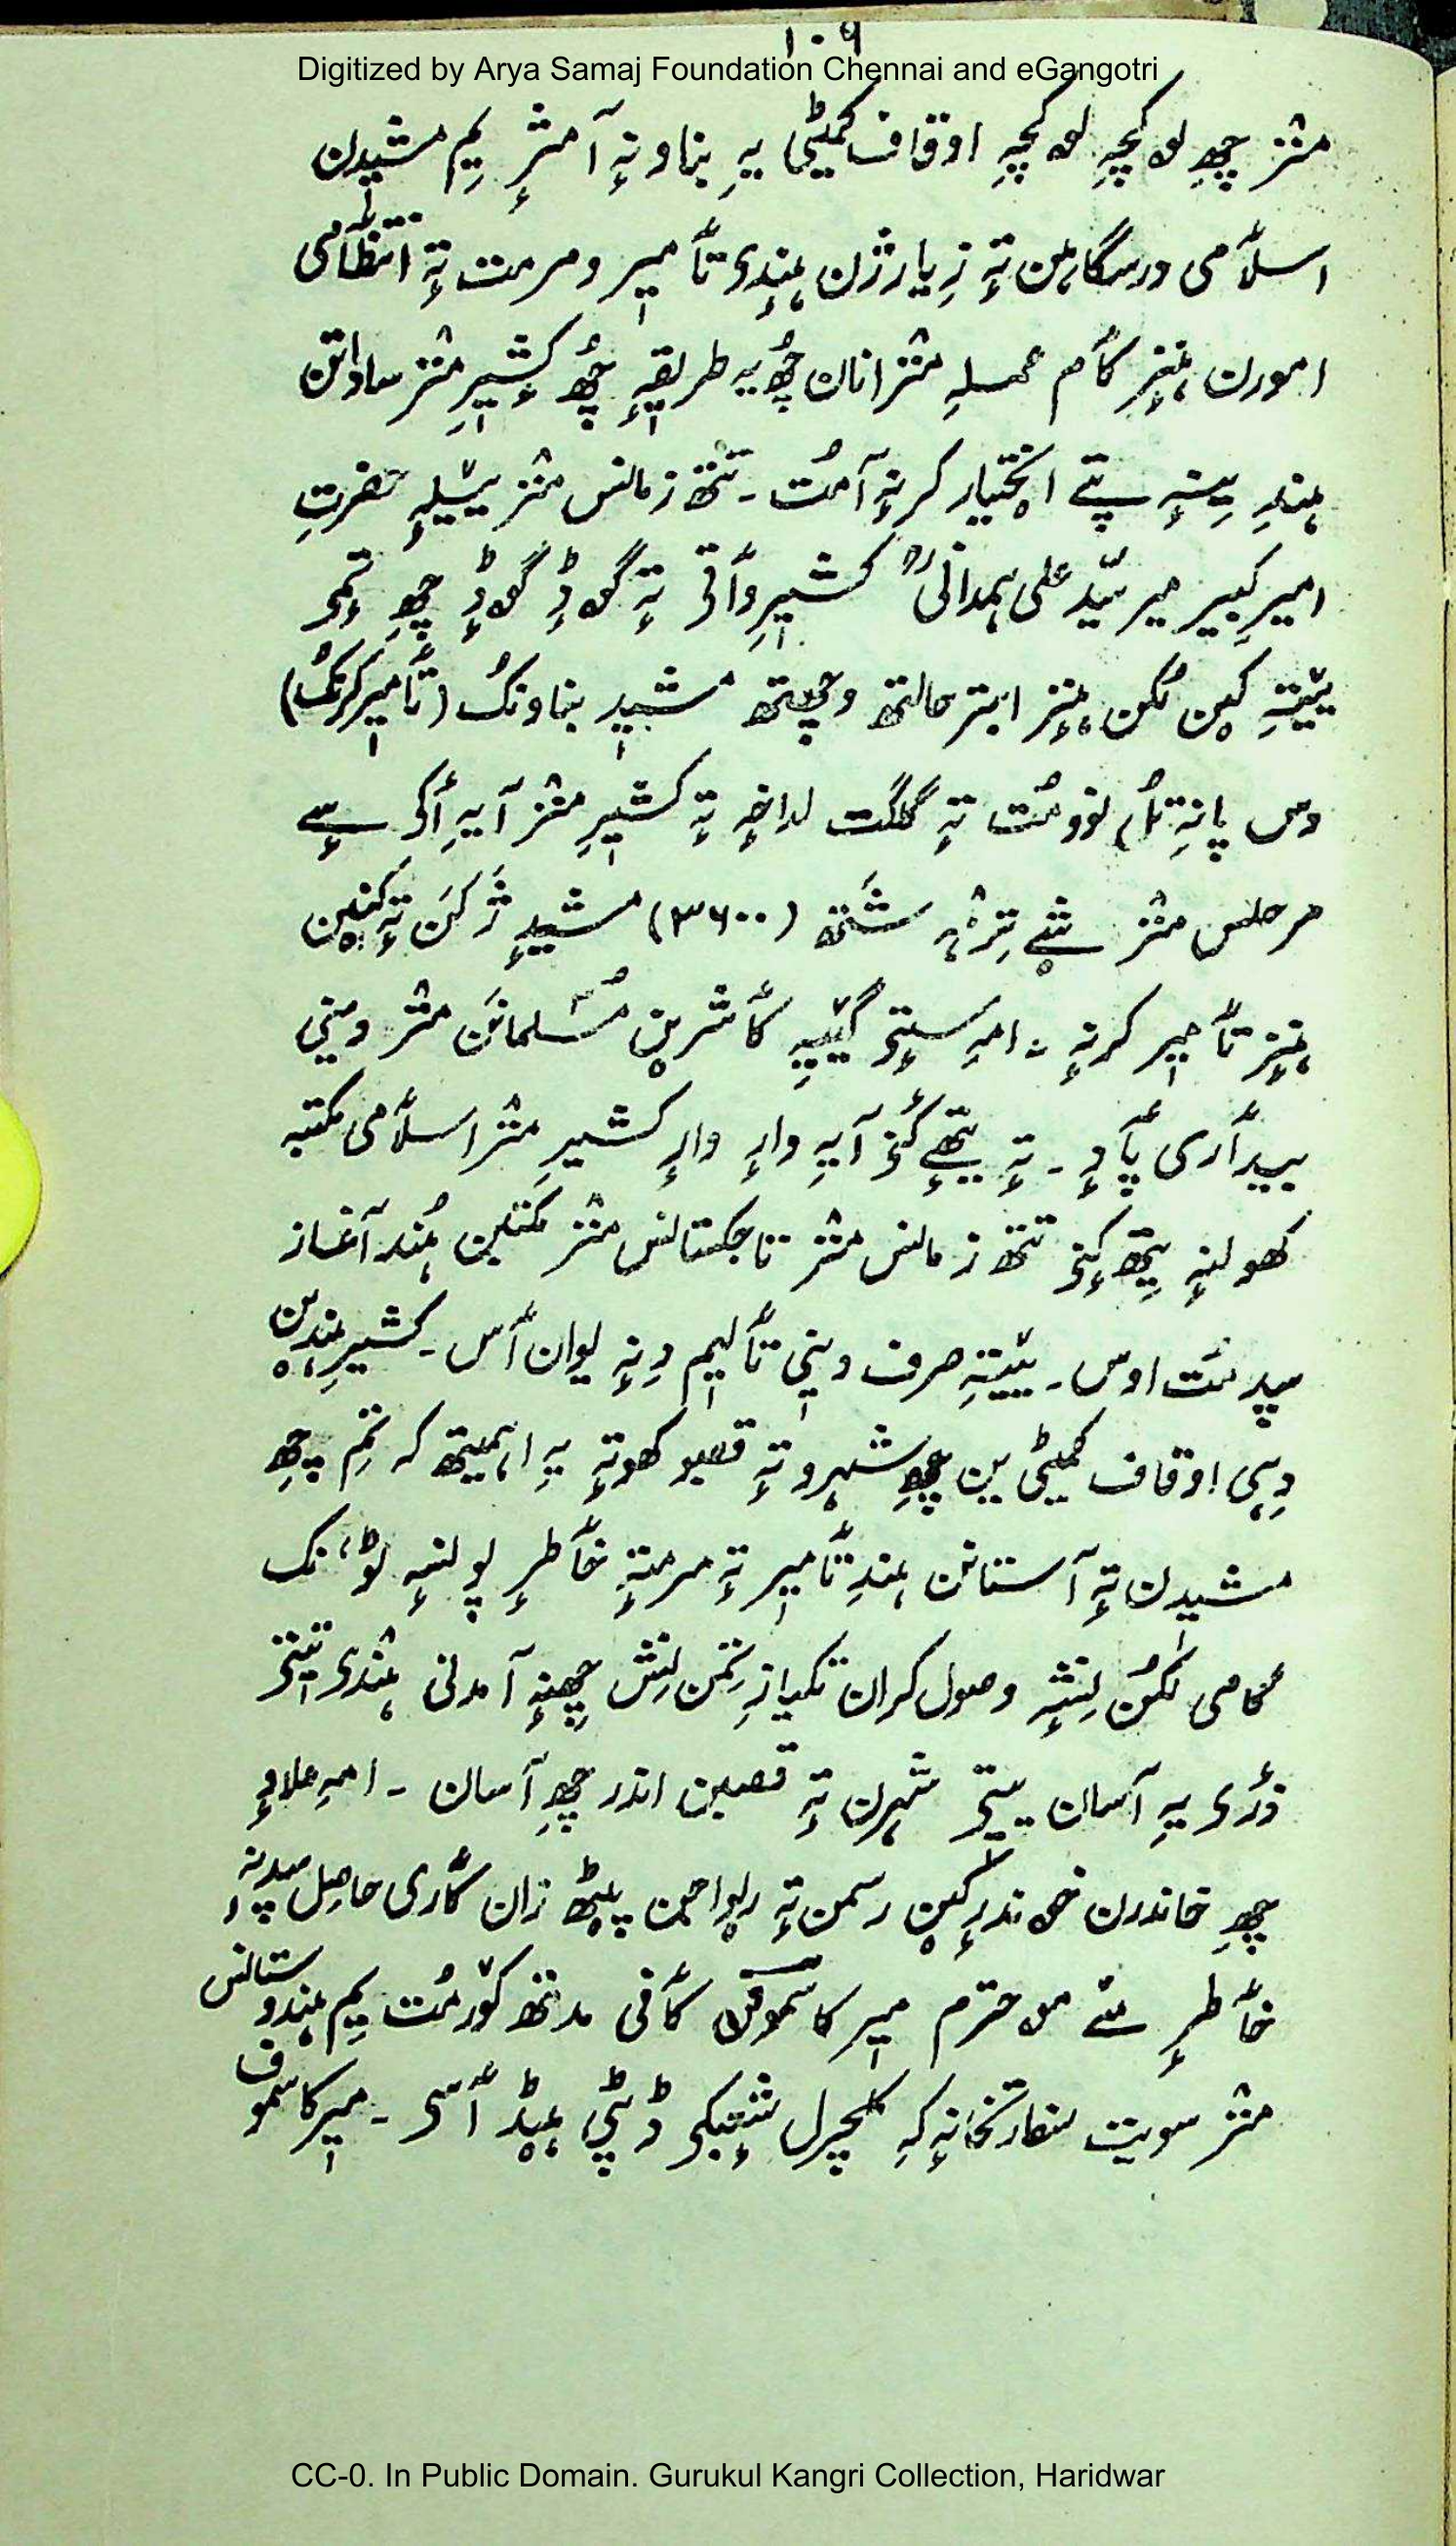 ۱۰۹
Digitized by Arya Samaj Foundation Chennai and eGangotri
منٛز چھِ لۄکچہِ لۄکچہِ اوقاف کمیٹی یہِ بناونہٕ آمژٕ یِم مشیدن
اسلٲمی درسگاہن تہٕ زِیارژن ہٕنٛدی تٲمیر و مرمت تہٕ انتظٲمی
امورن ہٕنٛز کٲم عملہِ منٛز انان چھُ یہ طریقہٕ چھُ کٔشیرِ منٛز ساداتن
ہندِ یِنہٕ پتے اختیار کرنہٕ آمُت ۔ تتھ زمانس منٛز ییلہِ حضرتِ
امیر کبیر میر سیّد علی ہمدانیؒ کشیرِ وٲتی تہٕ گۄڈٕ گۄڈٕ چھِ تِمَو
یَتہِ کین لُکن ہٕنٛز ابتر حالتھ وچھِتھ مشید بناونُک (تٲمیر کرنُک)
دس پانہٕ تُل نوومُت تہٕ گلگت لداخہٕ تہٕ کشیرِ منٛز آیہِ أکی سٕے
مرحلس منٛز شے تِرٛہ شَتھ (۳۶۰۰) مشیدٕ ژکَن تہٕ کنین
ہٕنٛز تٲمیر کرنہٕ ۔ امہِ سٟتؠ گییہِ کٲشرین مُسلمانَن منٛز دینی
بیدٲری پٲدٕ ۔ تہٕ یتھے کٔنؠ آیہِ وارٕ وارٕ کشیرِ منٛز اسلٲمی مکتبہ
کھولنہٕ یتھ کٔنؠ تتھ زمانس منٛز تاجکستانس منٛز مکتبن ہُند آغاز
سپدمُت اوس ۔ یتہِ صرف دینی تٲلیم دِنہٕ یوان ٲس ۔ کشیرِ ہندین
دِہی اوقاف کمیٹی ین چھِ شہرو تہٕ قصبو کھوتہٕ یہِ اہمیتھ کہ تِم چھِ
مشیدن تہٕ آستانن ہندِ تٲمیر تہٕ مرمتہٕ خٲطرٕ پونسہٕ
مُقامی لُکن نِشہِ وصول کران تکیازِ تِمن نِش چھنہٕ آمدنی ہٕنٛدی تِتؠ
ذٔری یہِ آسان یٟتؠ شہرن تہٕ قصبن اندر چھِ آسان ۔ امہِ علاوٕ
چھِ خاندرن رسمن تہٕ رِواجن پیٹھ زان کٲری حاصِل سپدنہٕ
خٲطرٕ مےٚ محترم میر کاسموفن کٲفی مدتھ کۆرمُت یِم ہندوستانس
منٛز سویت سفارتخانہٕ کہِ کلچرل شٕعبکی ڈپٹی ہیڈ ٲسؠ ۔ میر کاسموف
CC-0. In Public Domain. Gurukul Kangri Collection, Haridwar